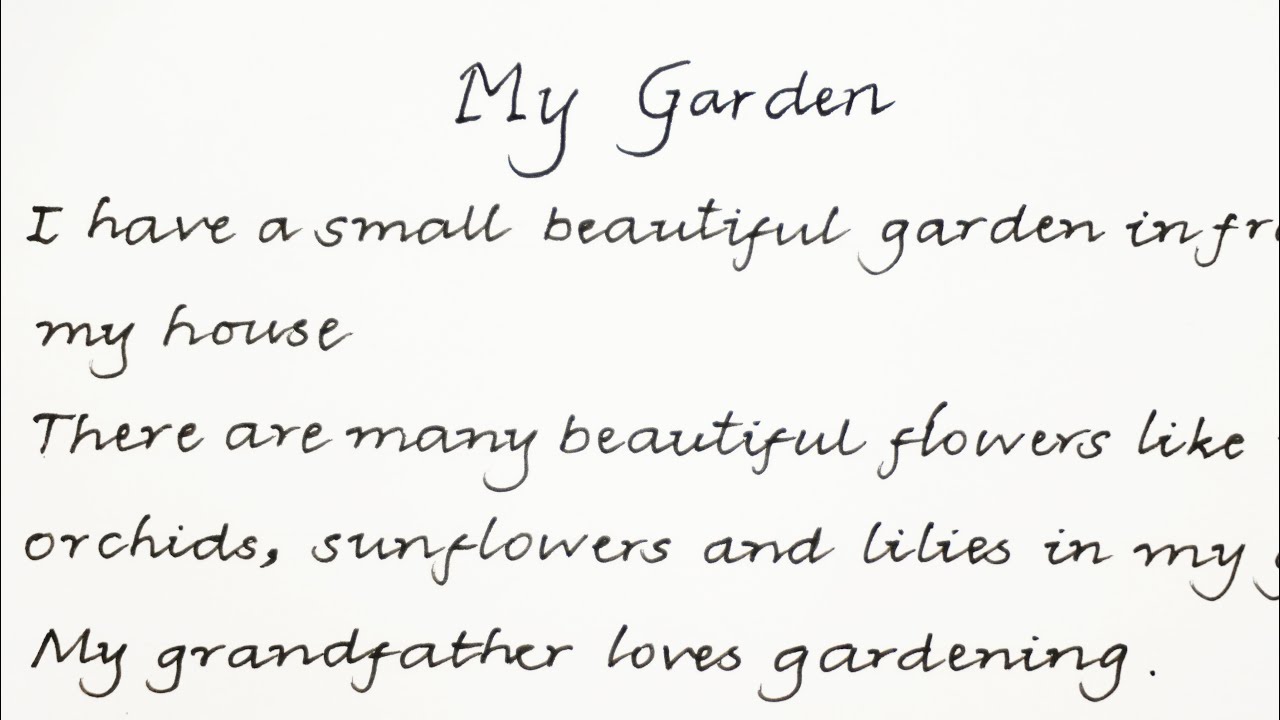 My Garden
I have a small beautiful garden in
my house
There are many beautiful flowers like
orchids, sunflowers and lilies in my
My grandfather loves gardening.